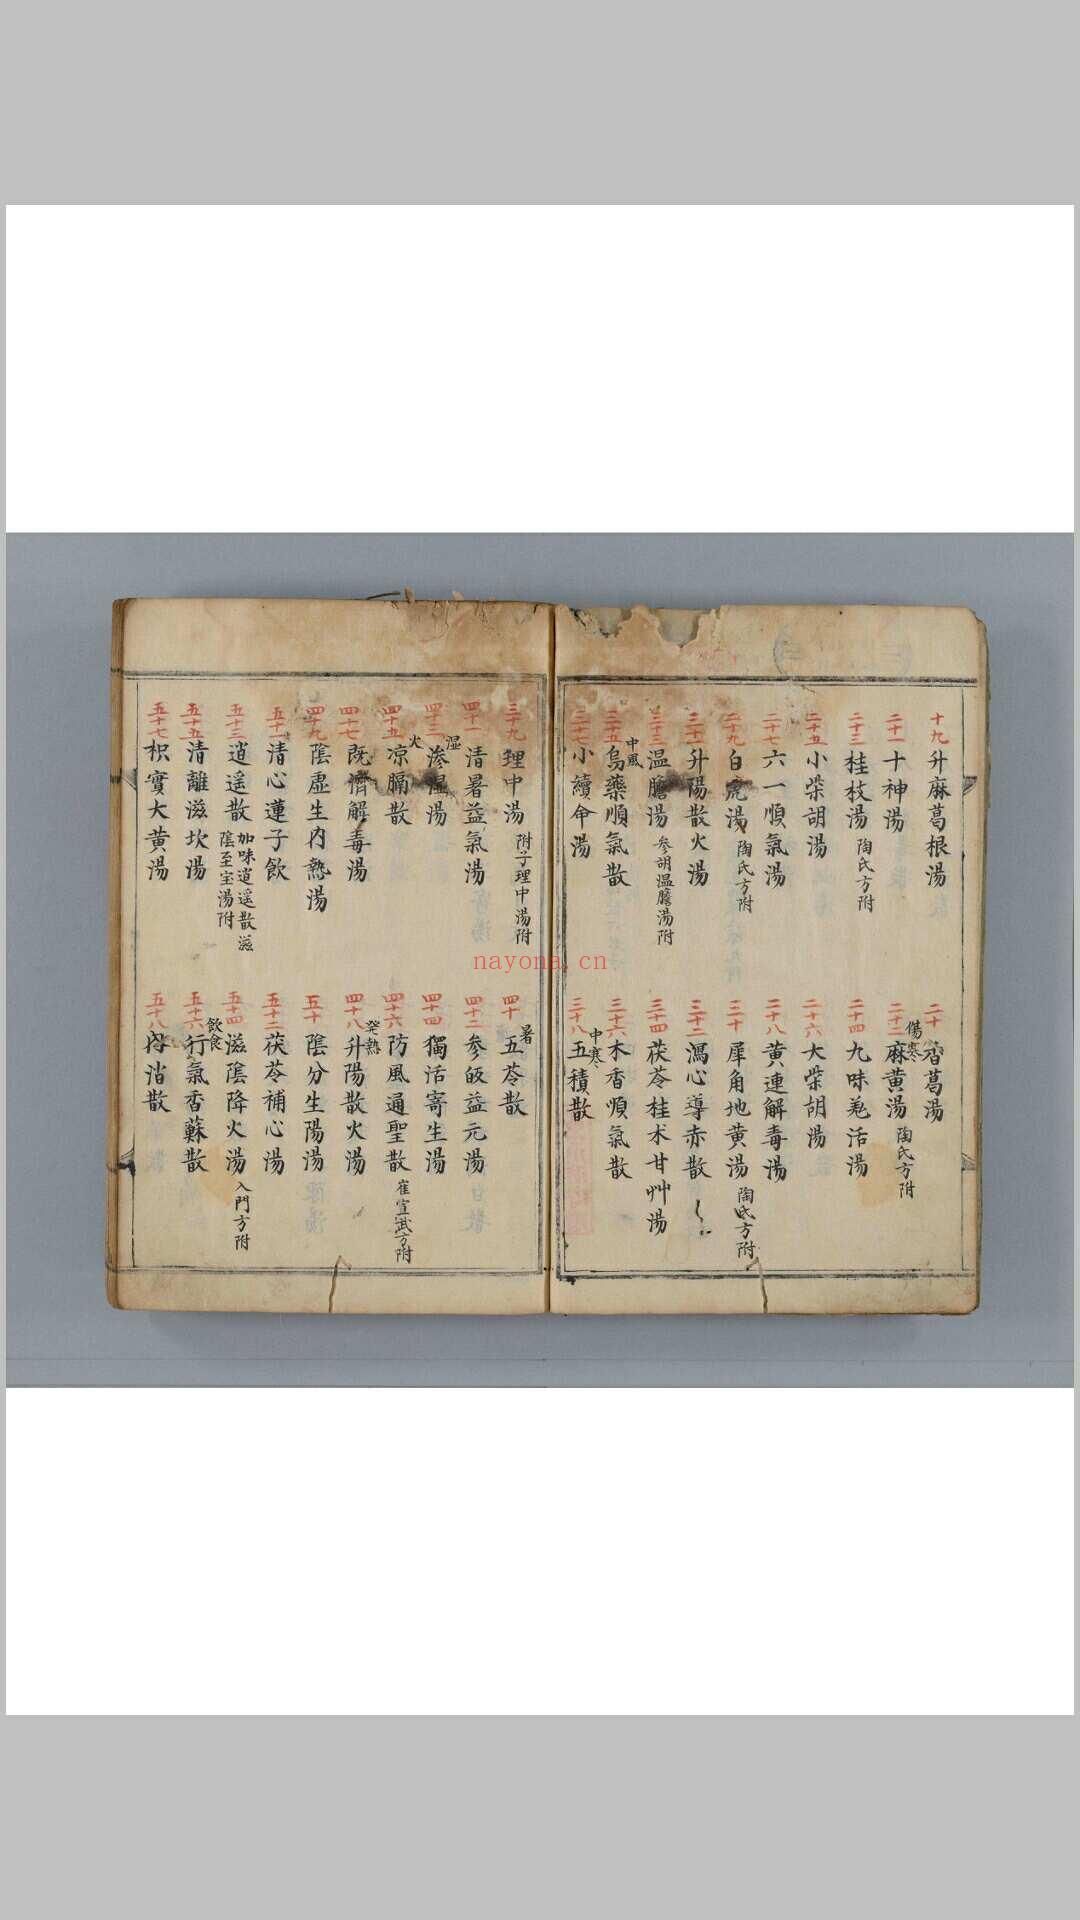 十九 升麻葛根湯
二十 香葛湯
二十一 十神湯
傷寒
二十二 麻黄湯 陶氏方附
二十三 桂枝湯 陶氏方附
二十四 九味羗活湯
二十五 小柴胡湯
二十六 大柴胡湯
二十七 六一順氣湯
二十八 黄連解毒湯
二十九 白虎湯 陶氏方附
三十 犀角地黄湯 陶氏方附
三十一 升陽散火湯
三十二 瀉心導赤散
三十三 温膽湯 參胡温膽湯附
三十四 茯苓桂朮甘艸湯
中風
三十五 烏藥順氣散
三十六 木香順氣散
三十七 小續命湯
中寒
三十八 五積散
三十九 理中湯 附子理中湯附
暑
四十 五苓散
四十一 清暑益氣湯
四十二 參䏂益元湯
湿
四十三 滲湿湯
四十四 獨活寄生湯
火
四十五 凉膈散
四十六 防風通聖散 崔宣武方附
四十七 既濟解毒湯
発熱
四十八 升陽散火湯
四十九 陰虚生内熱湯
五十 陰分生陽湯
五十一 清心蓮子飲
五十二 茯苓補心湯
五十三 逍遥散 加味逍遥散滋
陰至宝湯附
五十四 滋陰降火湯 入門方附
五十五 清離滋坎湯
飲食
五十六 行氣香蘇散
五十七 枳實大黄湯
五十八 内消散
nayona.cn